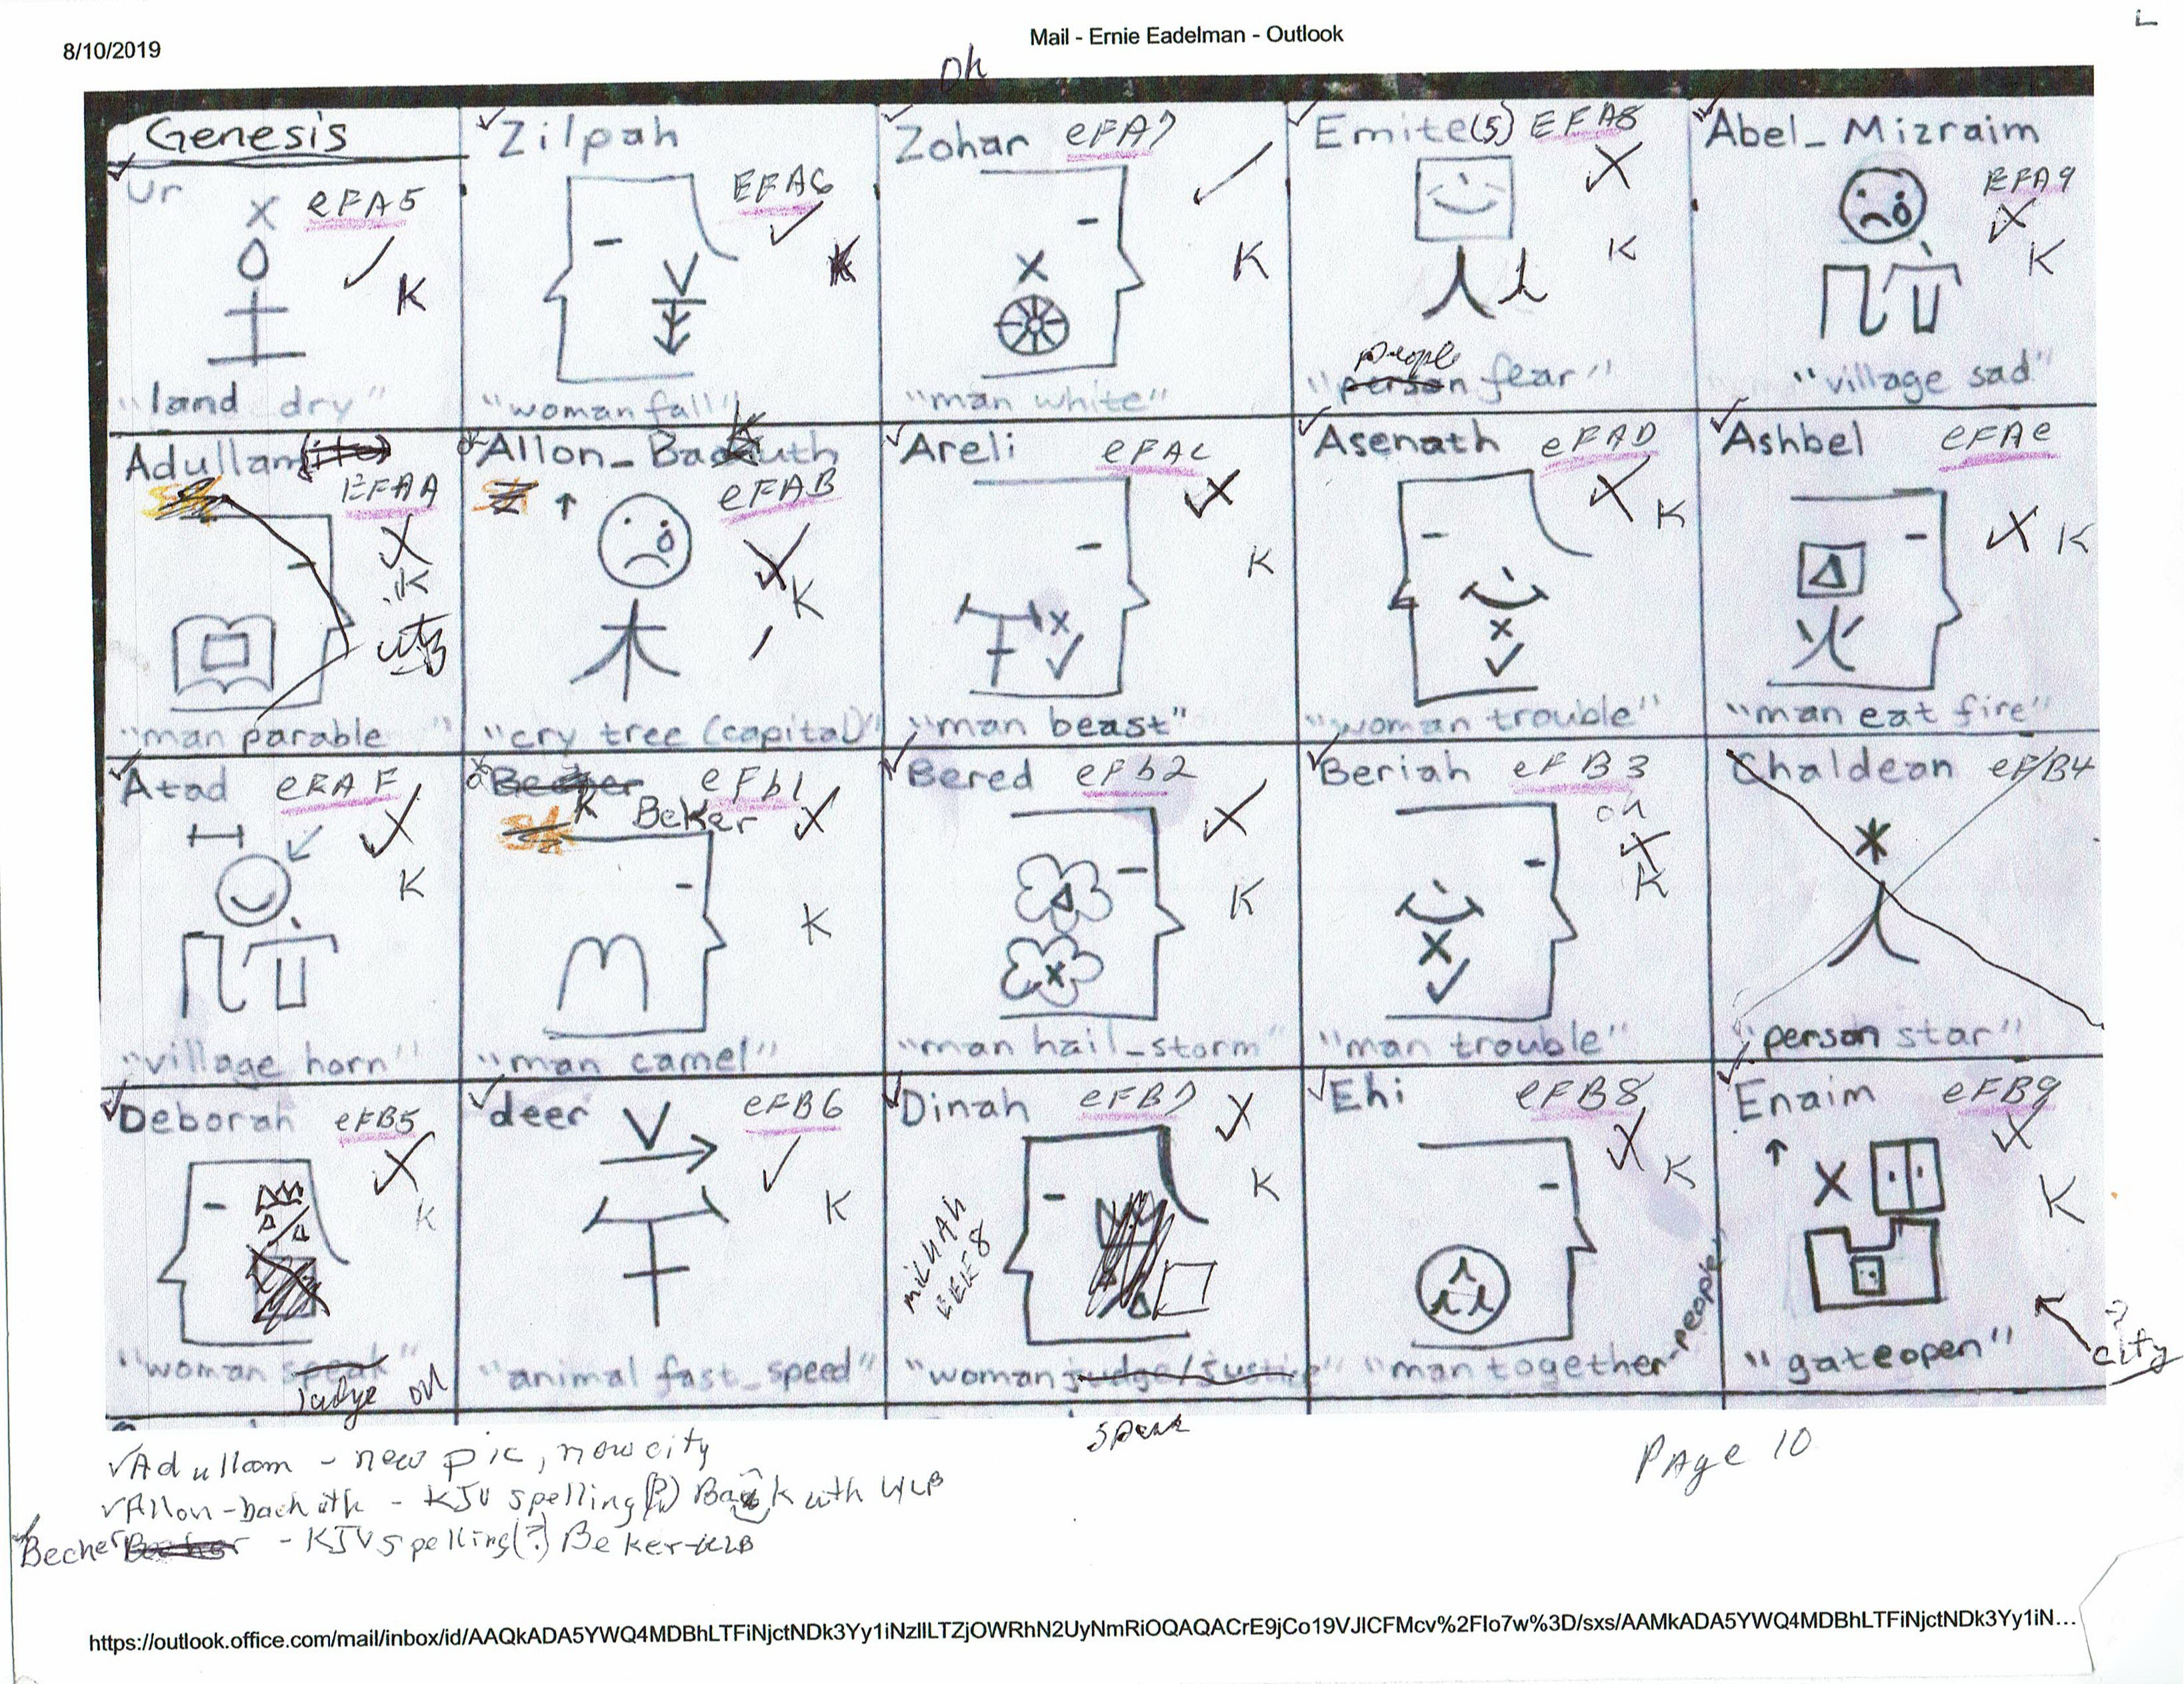 8/10/2019
Mail - Ernie Eadelman - Outlook
L
oh
Genesis
Ur
eFA5
K
"land dry"
Zilpah
EFA6
K
"woman fall"
Zohar eFA7
K
"man white"
Emite(s) EFA8
K
people
"person fear"
Abel_Mizraim
EFA9
K
"village sad"
Adullam(ite)
EFAA
K
"man parable"
Allon_Bakuth
eFAB
K
"cry tree (capital)"
Areli eFAC
K
"man beast"
Asenath eFAD
K
"woman trouble"
Ashbel eFAe
K
"man eat fire"
Atad eFAF
K
"village horn"
Becher eFb1
K Beker
K
"man camel"
Bered eFb2
K
"man hail_storm"
Beriah eFB3
oh
K
"man trouble"
Chaldean eFB4
"person star"
Deborah eFB5
K
"woman speak"
Judge oh
deer eFB6
K
"animal fast_speed"
Dinah eFB7
K
milkAh
EEE8
"woman judge/justice"
speak
Ehi eFB8
K
"man together-people"
Enaim eFB9
K
"gate open"
? city
✓Adullam - new pic, now city
✓Allon-bachuth - KJV spelling(?) Bakuth WLB
Becher - KJV spelling(?) Beker-WLB
PAge 10
https://outlook.office.com/mail/inbox/id/AAQkADA5YWQ4MDBhLTFiNjctNDk3Yy1iNzllLTZjOWRhN2UyNmRiOQAQACrE9jCo19VJlCFMcv%2Flo7w%3D/sxs/AAMkADA5YWQ4MDBhLTFiNjctNDk3Yy1iN...